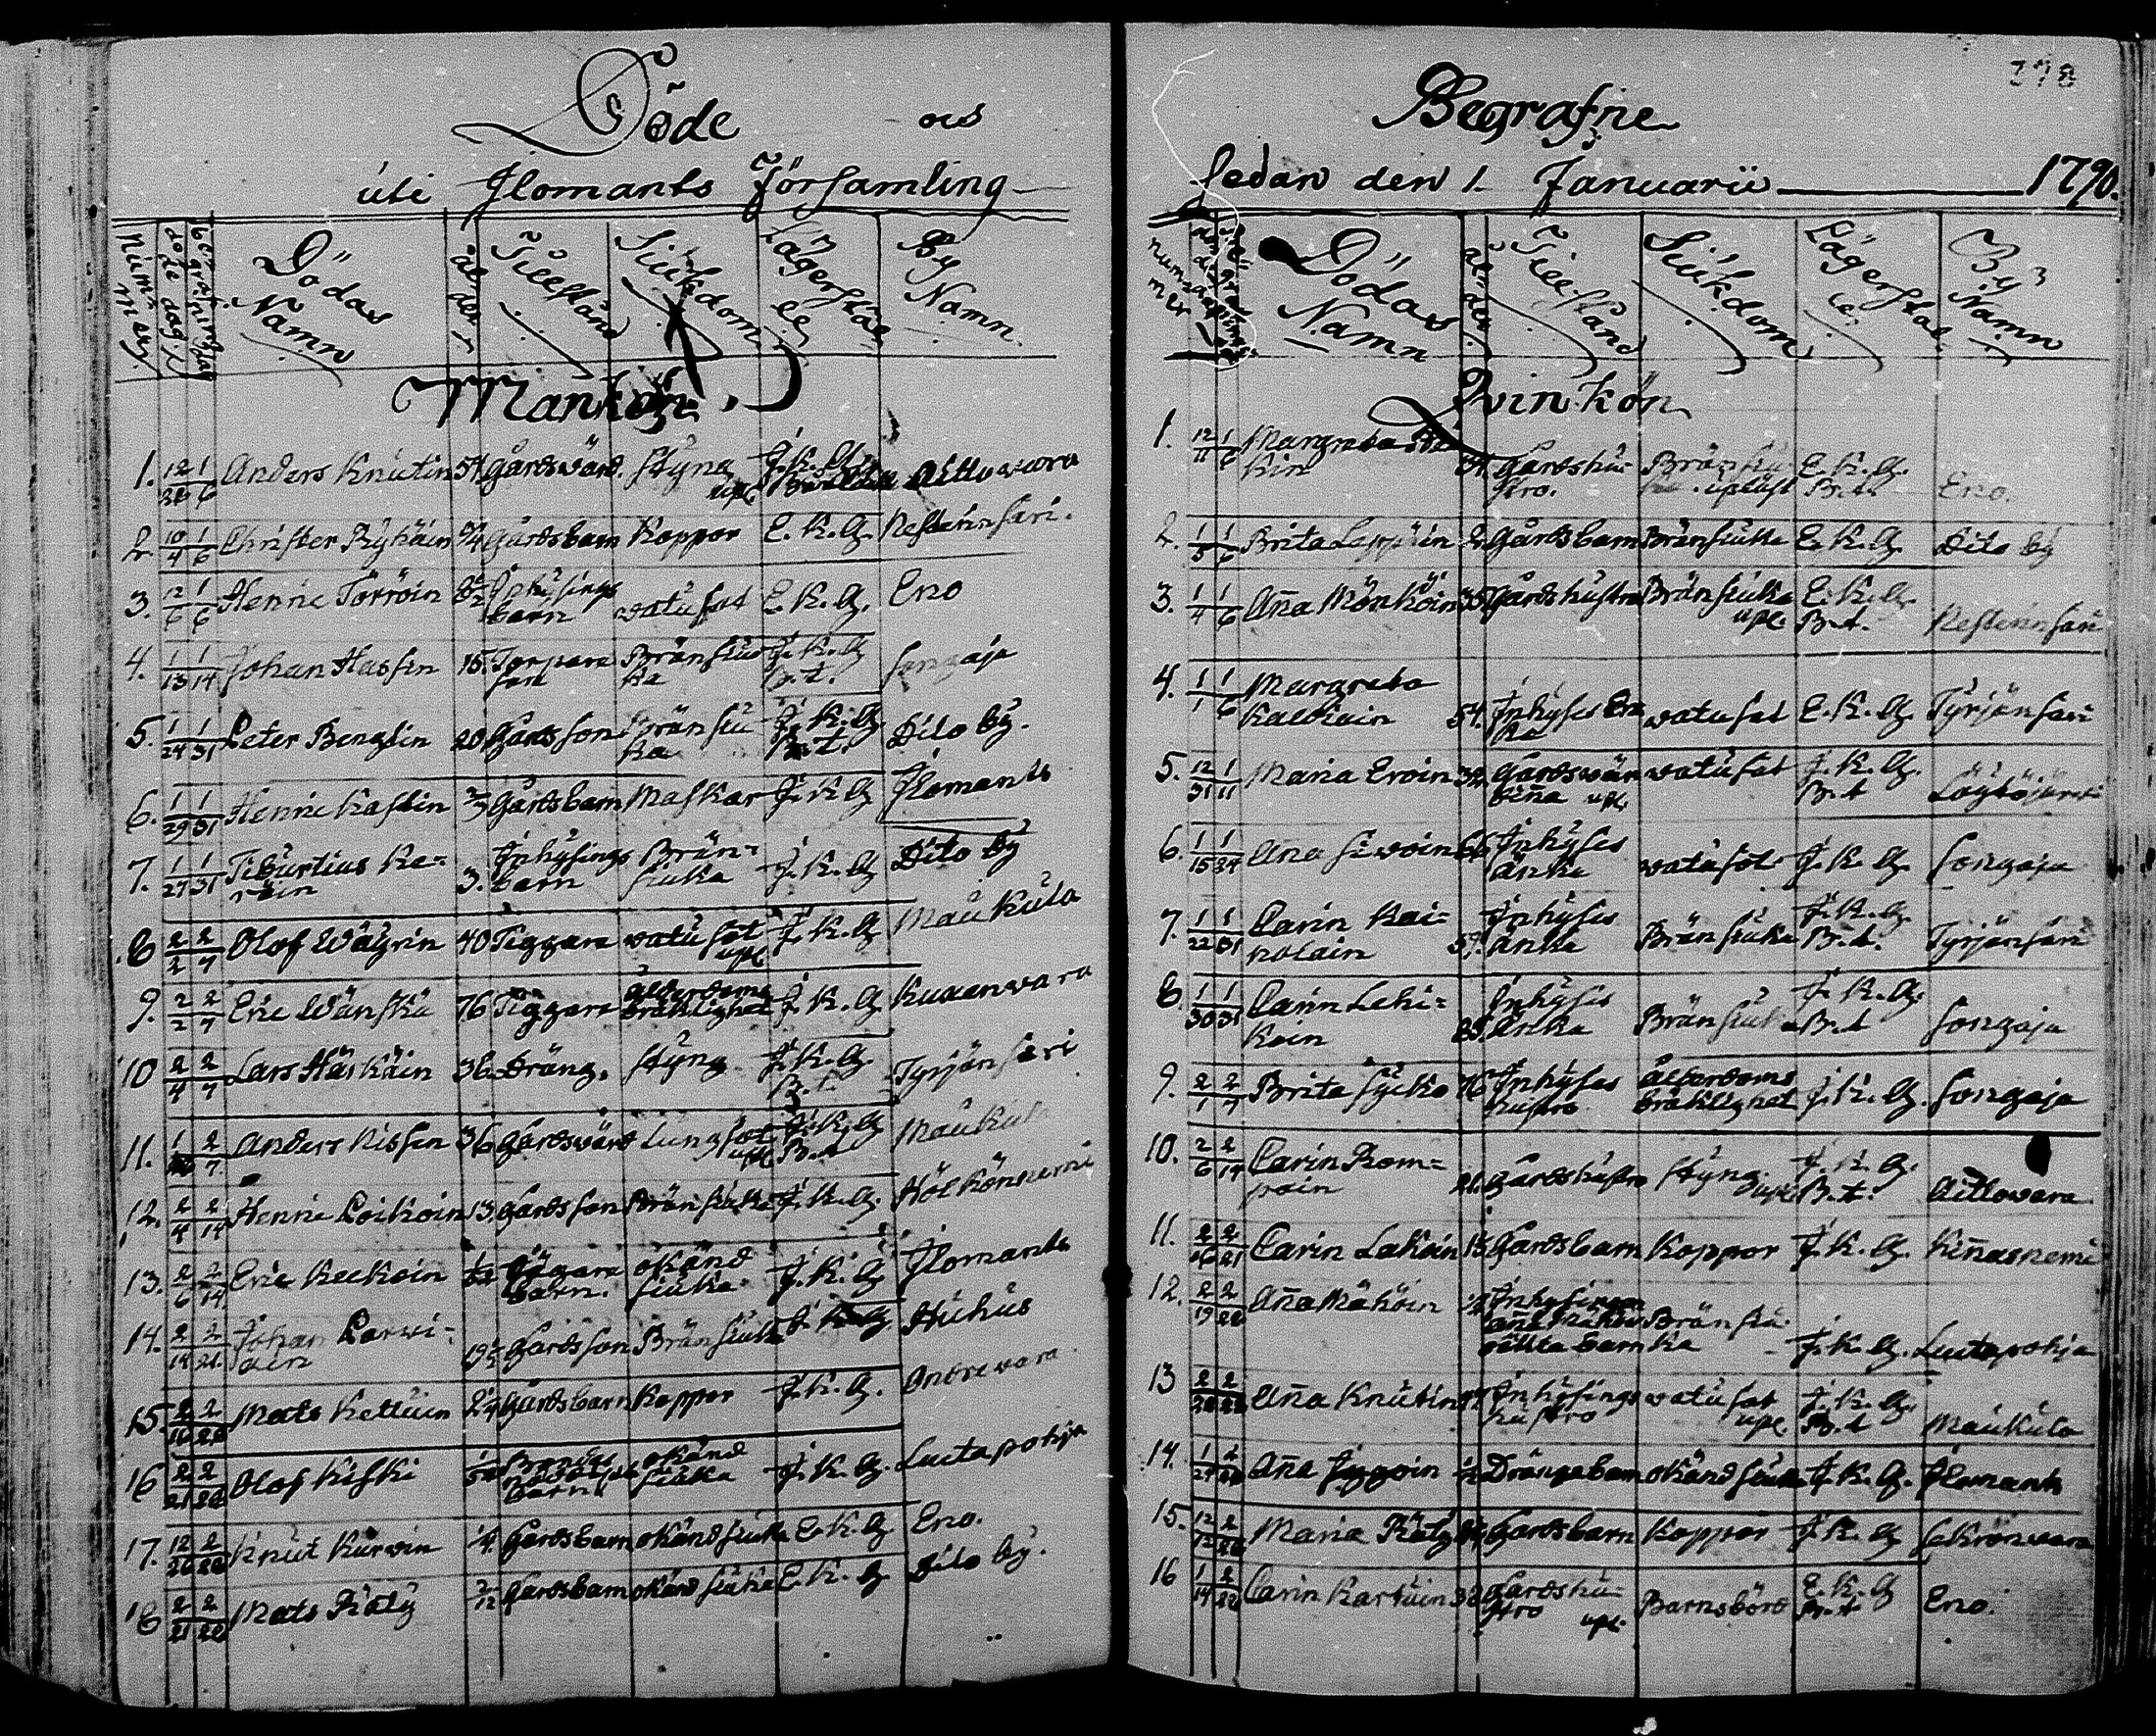 278
Döde och
uti Ilomants Församling
Nummer. döde dag begrafnings dag Dödas Namn ålder Tillstånd Siukdom Lägerställe By Namn.
Mankön
1. 12/31 1/6 Anders Knutin 54 Gårdsvärd. Styng upl. Aittowaara
2. 10/4 1/6 Christer Ryhäin 3/4 Gårdsbarn Koppor E. K. G. Nesterinsari.
3. 12/6 1/6 Henric Törröin Inhysings barn watusot E. K. G. Eno
4. 1/13 1/14 Johan Hassin 15. Torpare son Bränsiuka I. K. G. B. t. Songaja
5. 1/24 1/31 Peter Benglin 20 Gårdsson Bränsiuka I. K. G. B. t. Dito by.
6. 1/29 1/31 Henric Kastin 2/3 Gårdsbarn Maskar I. K. G. Ilomants
7. 1/27 1/31 Tiburtius Ka=
räin 3. Inhysings barn Bränsiuka I. K. G. Dito by
8 2/2 2/7 Olof Wäyrin 40 Tiggare watusot upl I. K. G. Maukula
9. 2/2 2/7 Eric Wänskä 76 Tiggare ålderdoms bräklighet I. K. G. Kuxenvara
10 2/4 2/7 Lars Häikäin 36. Dräng. Styng I. K. G. B. t. Tyrjänsari
11. 2/7 Anders Nissin 36 Gårdsvärd Lungsot upl I. K. G. B. t Maukula
12. 2/4 2/14 Henric Poikoin 13. Gårdsson Bränsiuka I. K. G. Hölkönnemi
13. 2/6 2/14 Eric Keckoin barn. okänd siuka I. K. G. Ilomants
14. 2/14 2/21. Johan Parvi-
ain 19 1/2 Gårdsson Bränsiuka I. K. G. Huhus
15. 2/16 2/28 Mats Kettuin 2 1/4 Gårdsbarn Koppor I. K. G. Ontrovara
16 2/21 2/28 Olof Kiski barn okänd siuka I. K. G. Luutapohja
17. 12/26 2/28 Knut Kurvin 1/4. Gårdsbarn okänd siuka E. K. G. Eno.
18 2/21 2/28 Mats Räty 2/12 Gårdsbarn okänd siuka E. K. G. Dito by.
Begrafne
sedan den 1. Januarii 1790.
nummer Dödas Namn ålder Tillstånd Siukdom Lägerställe By Namn
Qvinkön
1. 12/11 1/6 Margreta
kin 34. Gårdshustro. upläst E. K. G. B. t. Eno.
2. 1/5 1/6 Brita Lappuin 2. Gårdsbarn Bränsiuka E. K. G. Dito by
3. 1/4 1/6 Aña Mönköin 35 Gårdshustro Bränsiuka upl. E. K. G. B. t. Nesterinsari
4. 1/1 1/6 Margreta
Kaukain 54. Inhyses Enka watusot E. K. G. Tyrjänsari
5. 12/31 1/11 Maria Eroin 32. Gårdsvärdiña upl. watusot I. K. G. B. t Löytöjärvi
6. 1/15 1/24 Ana Sivoin 66 Inhyses Änka watusot I. K. G. Songaja
7. 1/22 1/31 Carin Kai=
nolain 57. Inhyses Änka Bränsiuka I. K. G. B. t. Tyrjänsari
8. 1/30 1/31 Carin Lehi=
koin Inhyses Änka Bränsiuka I. K. G. B. t Songaja
9. 2/1 2/7 Brita Sycko 76 Inhyses hustro ålderdoms bräklighet I. K. G. Songaja
10. 2/6 2/14 Carin Rom=
pain 21. Gårdshustro Styng upl. I. K. G. B. t. Aittovara
11. 2/16 2/21 Carin Lakain Gårdsbarn Koppor I. K. G. Kiñasnemi
12. 2/19 2/28 Aña Mähöin oäkta barn Bränsiuka I. K. G. Luutapohja
13 2/28 Aña Knutin Inhysings hustro watusot upl. I. K. G. B. t Maukula
14. 1/27 2/28 Aña 1/2 Drängebarn okänd siuka I. K. G. Ilomants
15. 12/12 2/28 Maria Räty Gårdsbarn Koppor I. K. G. Sikrenvara
16 1/14 2/28 Carin Kartuin 38 Gårdshustro upl. Barnsbörd E. K. G B. t Eno.